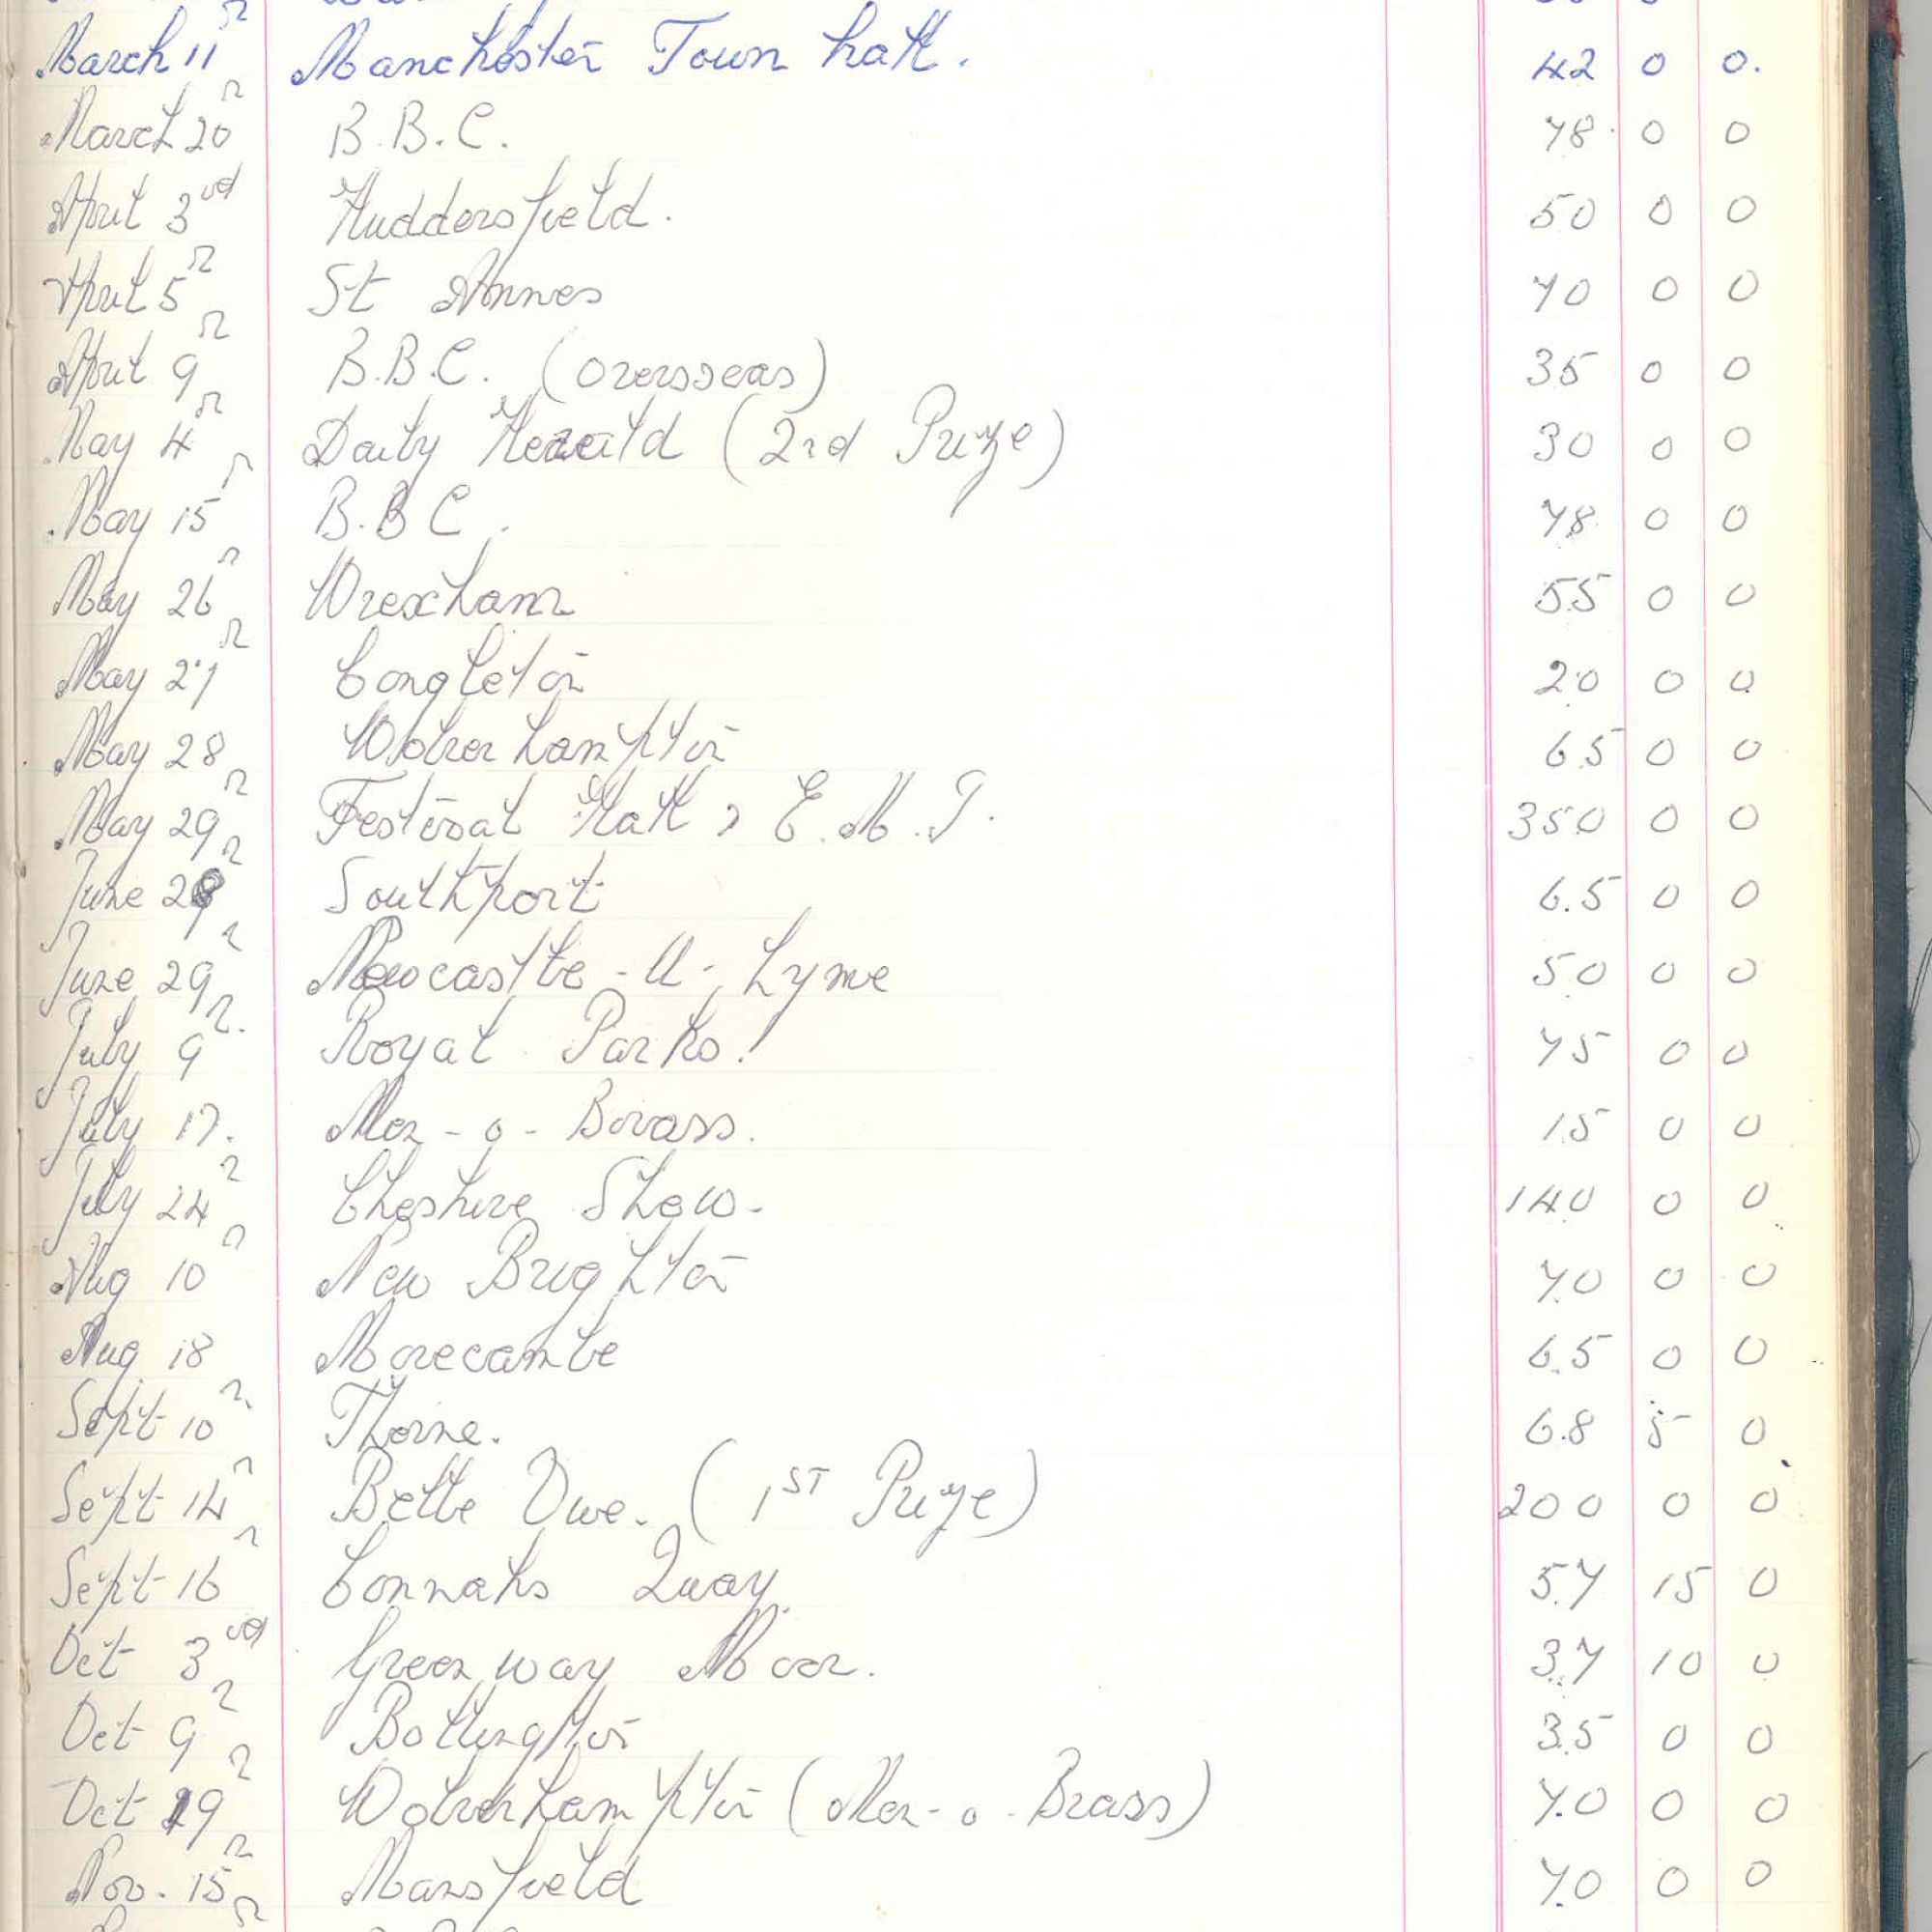 March 11th Manchester Town Hall. 42 0 0.
March 20th B.B.C. 78 0 0
April 3rd Huddersfield. 50 0 0
April 5th St Annes 70 0 0
April 9th B.B.C. (Oversseas) 35 0 0
May 4th Daily Herald (2nd Prize) 30 0 0
May 15th B.B.C. 78 0 0
May 26th Wrexham 55 0 0
May 27th Congleton 20 0 0
May 28 Wolverhampton 65 0 0
May 29th Festival Hall, E.M.I. 350 0 0
June 28th Southport 65 0 0
June 29th Newcastle-U-Lyme 50 0 0
July 9th Royal Parks. 75 0 0
July 17. Men-o-Brass. 15 0 0
July 24th Cheshire Show. 140 0 0
Aug 10th New Brighton 70 0 0
Aug 18 Morecambe 65 0 0
Sept 10th Thorne. 68 5 0
Sept 14th Belle Vue. (1ST Prize) 200 0 0
Sept 16th Connahs Quay. 57 15 0
Oct 3rd Greenway Moor. 37 10 0
Oct 9th Bollington 35 0 0
Oct 29th Wolverhampton (Men-o-Brass) 70 0 0
Nov. 15th Mansfield 70 0 0